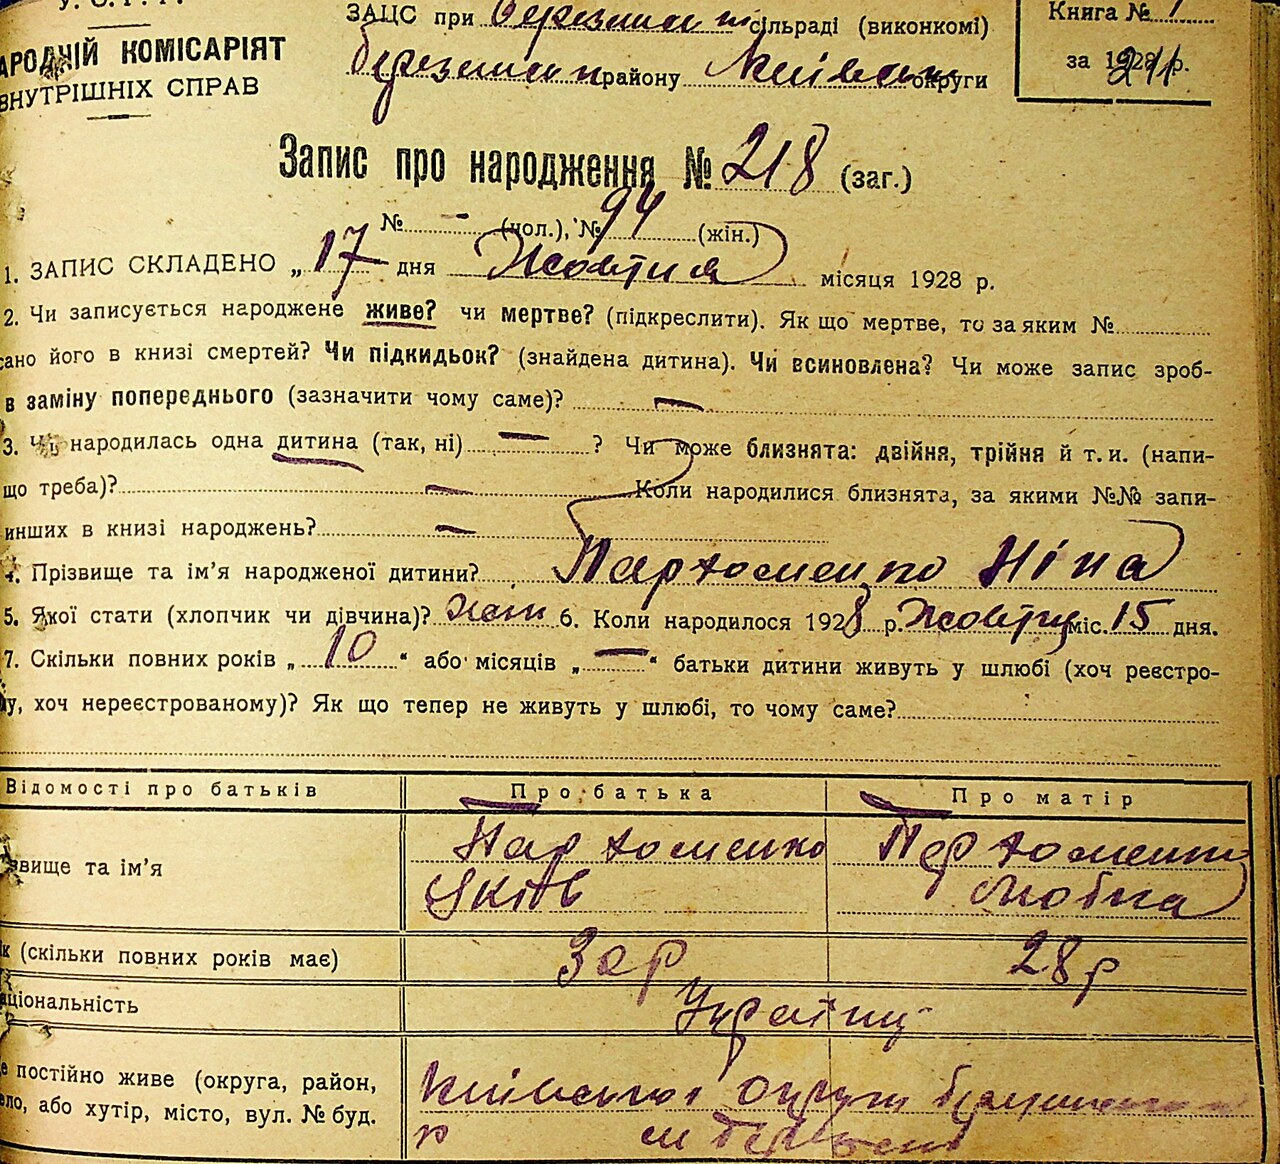 У.С.Р.Р.
ЗАЦС при сільраді (виконкомі)
Книга № 1
АРОДНІЙ КОМІСАРІЯТ
району округи
за 1928 р.
ВНУТРІШНІХ СПРАВ
Запис про народження № 218 (заг.)
№ - (чол.), № 94 (жін.)
1. ЗАПИС СКЛАДЕНО „ 17 дня Жовтня місяця 1928 р.
2. Чи записується народжене живе? чи мертве? (підкреслити). Як що мертве, то за яким №
сано його в книзі смертей? Чи підкидьок? (знайдена дитина). Чи всиновлена? Чи може запис зроб-
в заміну попереднього (зазначити чому саме)? —
3. Чи народилась одна дитина (так, ні) — ? Чи може близнята: двійня, трійня й т. и. (напи-
що треба)? — Коли народилися близнята, за якими №№ запи-
инших в книзі народжень? —
4. Прізвище та ім’я народженої дитини? Пархоменко Ніна
5. Якої стати (хлопчик чи дівчина)? 6. Коли народилося 1928 р. міс. 15 дня.
7. Скільки повних років „ 10 “ або місяців „ — “ батьки дитини живуть у шлюбі (хоч реєстро-
у, хоч нереєстрованому)? Як що тепер не живуть у шлюбі, то чому саме?
Відомості про батьків Про батька Про матір
звище та ім’я Пархоменко Пархоменко
Яків
к (скільки повних років має) 30 р 28 р
аціональність Українці
е постійно живе (округа, район, Київської округи
ело, або хутір, місто, вул. № буд. р